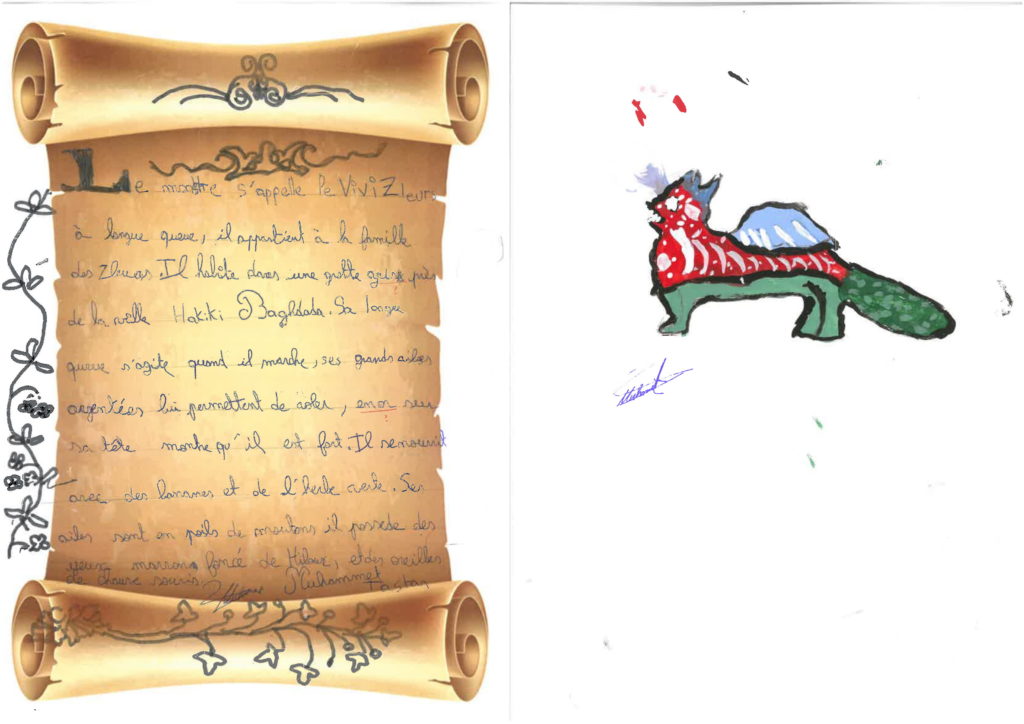 Le monstre s'appelle le ViViZleurs
à longue queue, il appartient à la famille
des Il habite dans une grotte près
de la ville Hakiki Baghdada. Sa longue
queue s'agite quand il marche, ses grands ailes
argentées lui permettent de voler, sur
sa tête montre qu'il est fort. Il se nourrit
avec des bananes et de l'herbe verte. Ses
ailes sont en poils de moutons il possède des
yeux marrons foncé de Hiboux, et des oreilles
de chauve souris.
Muhammet
Tastan